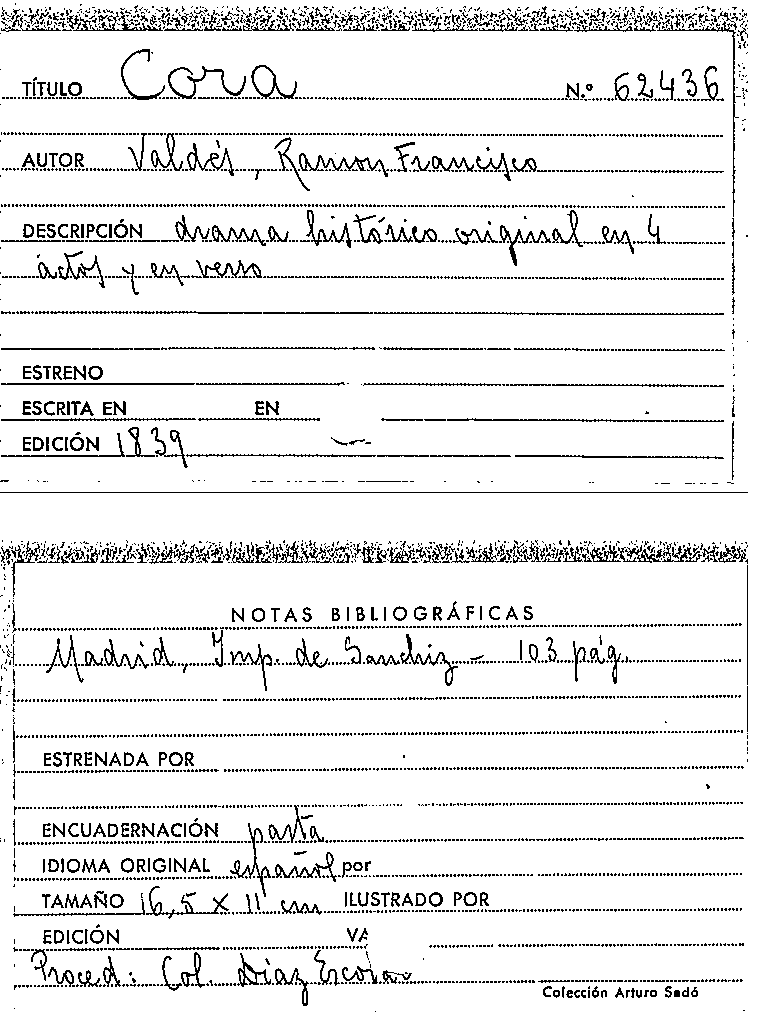 TÍTULO Cora N.º 62436
AUTOR Valdés, Ramon Francisco
DESCRIPCIÓN drama histórico original en 4
actos y en verso
ESTRENO
ESCRITA EN EN
EDICIÓN 1839
NOTAS BIBLIOGRÁFICAS
Madrid, Imp. de Sanchiz - 103 pág.
ESTRENADA POR
ENCUADERNACIÓN pasta
IDIOMA ORIGINAL español por
TAMAÑO 16,5 X 11 cm ILUSTRADO POR
EDICIÓN VA
Proced: Col. Díaz Escobar
Colección Arturo Sedó